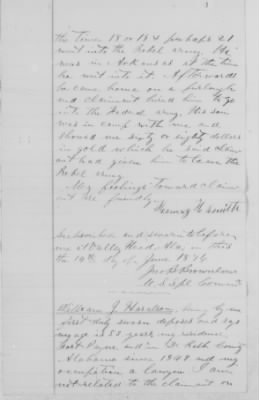 the time 18 or 19 & perhaps 21
went into the Rebel army. He
was in Arkansas at the time
he went into it. Afterwards
he came home on a furlough
and claimant hired him to go
into the Federal army. His son
was in camp with me and
showed me sixty or eighty dollars
in gold which he said claim
ant had given him to leave the
Rebel army.
My feelings toward claim
ant are friendly.
H Smith
Subscribed and sworn to before
me at Valley Head, Ala, on this
the 19th day of June 1876
Jno. B. Brownlow
U. S. Spl. Comr
William J. Haralson, being by me
first duly sworn deposes and says
my age is 55 years, my residence,
Fort Payne, and in De Kalb County
Alabama since 1849 and my
occupation a lawyer. I am
not related to the claimant or